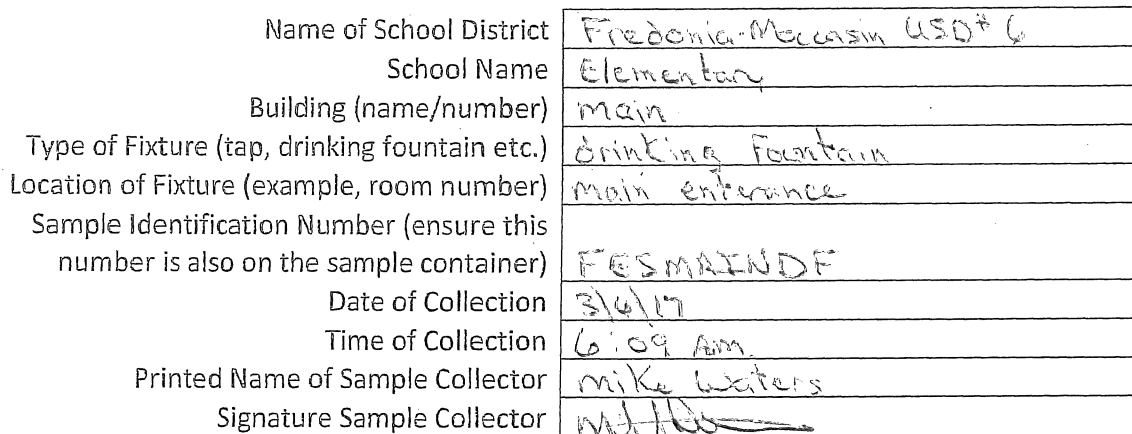 Name of School District Fredonia-Moccasin USD# 6
School Name Elementary
Building (name/number) main
Type of Fixture (tap, drinking fountain etc.) drinking Fountain
Location of Fixture (example, room number) main enterance
Sample Identification Number (ensure this
number is also on the sample container) FESMAINDF
Date of Collection 3/6/17
Time of Collection 6:09 Am
Printed Name of Sample Collector mike waters
Signature Sample Collector